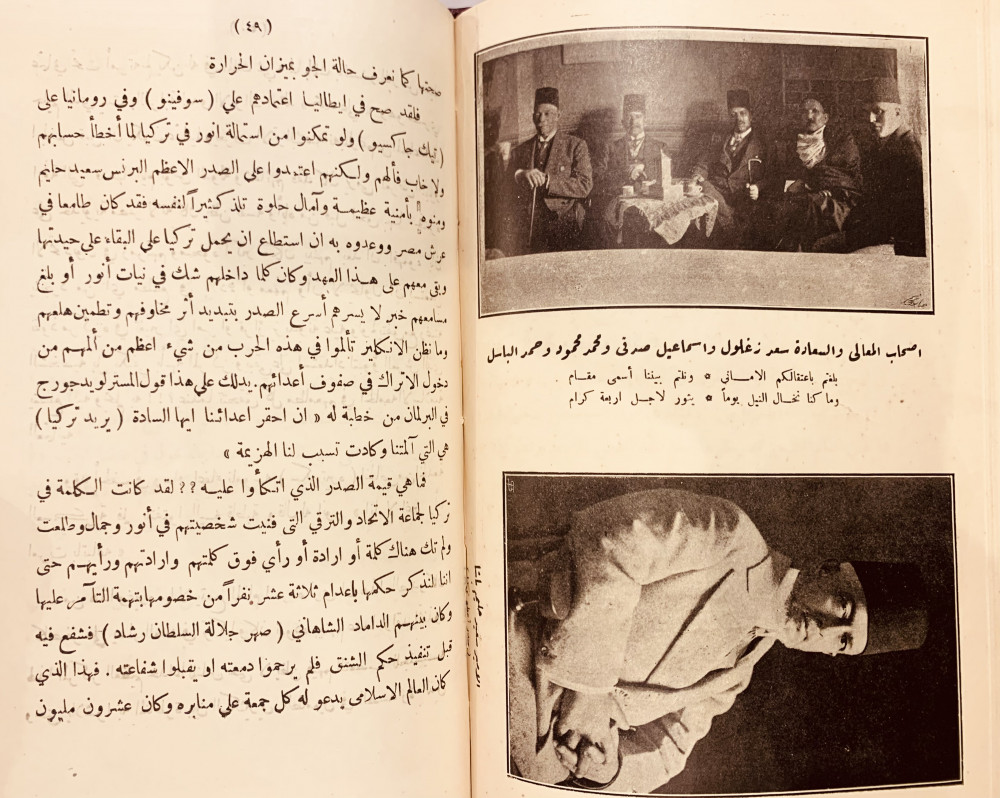 (٤٩)
صحتها كما نعرف حالة الجو بميزان الحرارة
فلقد صح في ايطاليا اعتمادهم علي (سوفينو) وفي رومانيا علي
(تيك جاكسيو) ولو تمكنوا من استمالة انور في تركيا لما أخطأ حسابهم
ولا خاب فألهم ولكنهم اعتمدوا على الصدر الاعظم البرنس سعيد حليم
ومنوه بأمنية عظيمة وآمال حلوة تلذ كثيراً لنفسه فقد كان طامعا في
عرش مصر ووعدوه به ان استطاع ان يحمل تركيا علي البقاء علي حيدتها
وبقى معهم على هذا العهد وكان كلما داخلهم شك في نيات أنور أو بلغ
مسامعهم خبر لا يسرهم أسرع الصدر بتبديد أثر مخاوفهم وتطمين هلعهم
وما نظن الانكليز تألموا في هذه الحرب من شيء اعظم من ألمهم من
دخول الاتراك في صفوف أعدائهم. يدلك علي هذا قول المستر لويد جورج
في البرلمان من خطبة له « ان احقر اعدائنا ايها السادة (يريد تركيا)
هي التي آلمتنا وكادت تسبب لنا الهزيمة »
فما هي قيمة الصدر الذي اتكأوا عليه؟؟ لقد كانت الكلمة في
تركيا لجماعة الاتحاد والترقي التى فنيت شخصيتهم في أنور وجمال وطلعت
ولم تك هناك كلمة أو ارادة أو رأي فوق كلمتهم وارادتهم ورأيهم حتى
اننا لنذكر حكمها باعدام ثلاثة عشر نفراً من خصومها بتهمة التآمر عليها
وكان بينهم الداماد الشاهاني (صهر جلالة السلطان رشاد) فشفع فيه
قبل تنفيذ حكم الشنق فلم يرحموا دمعته او يقبلوا شفاعته. فهذا الذي
كان العالم الاسلامى يدعو له كل جمعة علي منابره وكان عشرون مليون
اصحاب المعالى والسعادة سعد زغلول واسماعيل صدقى ومحمد محمود وحمد الباسل
بلغتم باعتقالكم الامانى * ونلتم بيننا أسمى مقام
وما كنا نخال النيل يوماً * يثور لاجل اربعة كرام